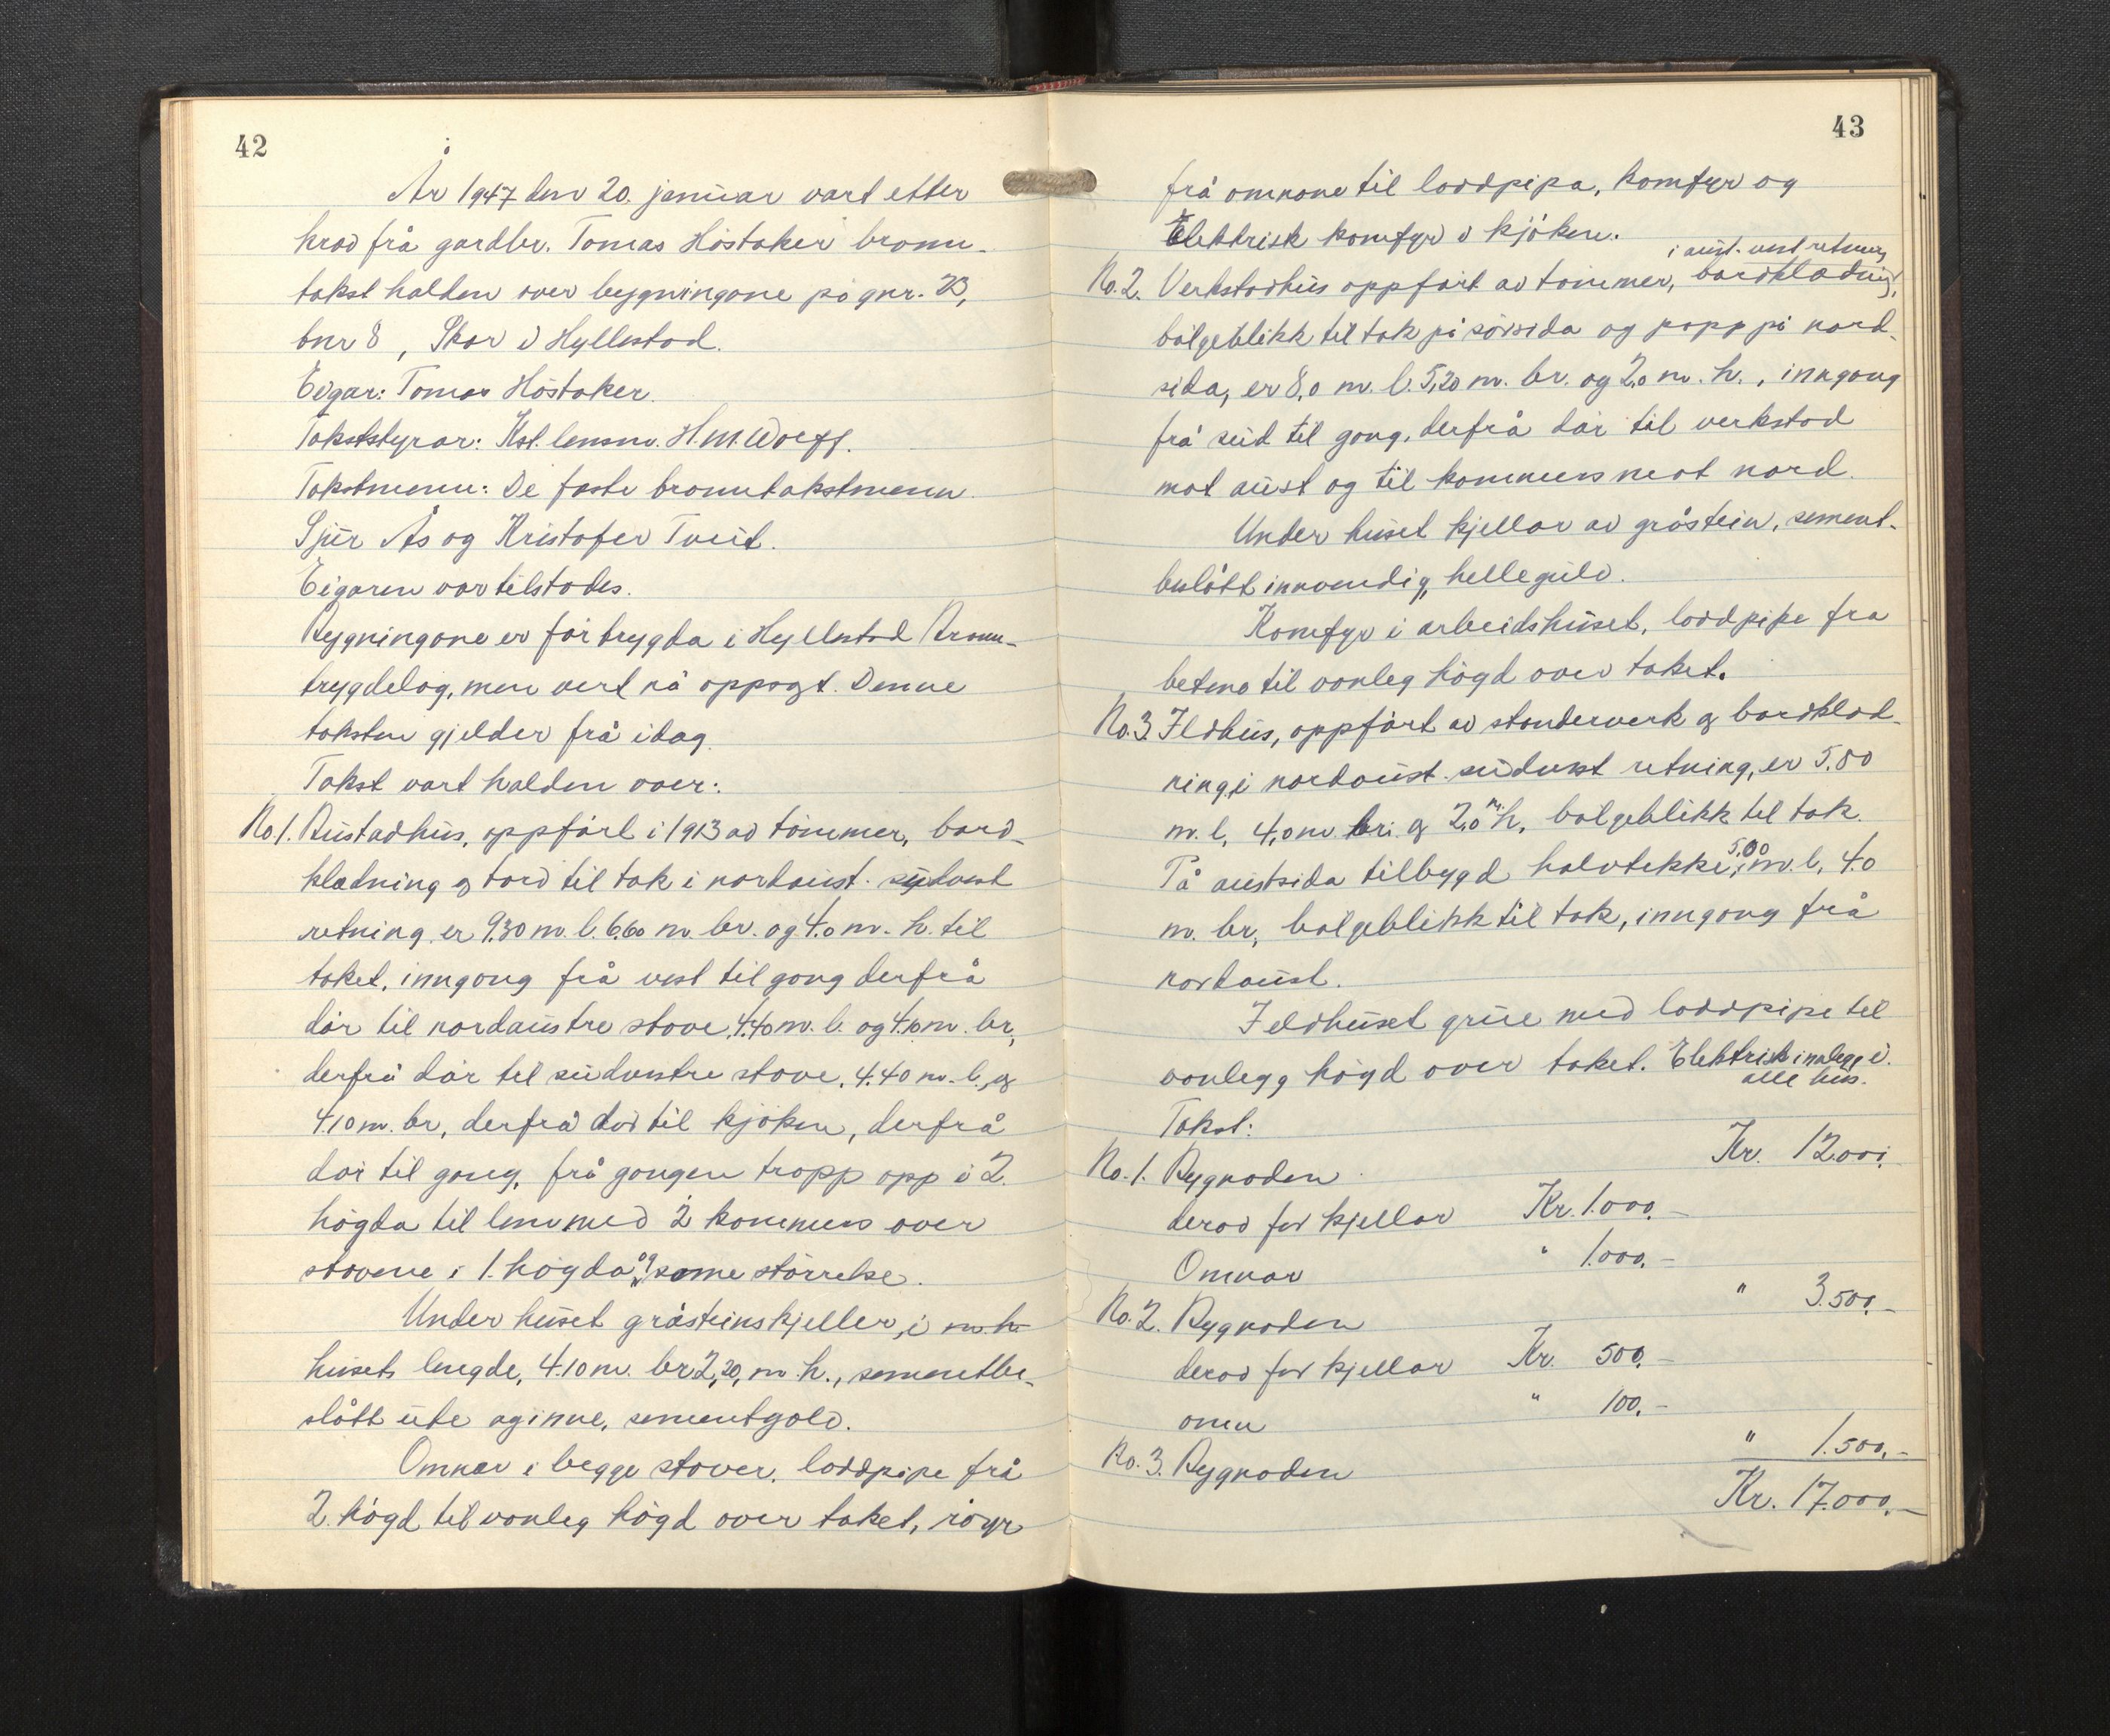 42
År 1947 den 20. januar vart etter
krav frå gardbr. Tomas Høstaker brann-
takst halden over bygningane på gnr. 23,
bnr 8, Skor i Hyllestad.
Eigar: Tomas Høstaker.
Takststyrar: Kst. lensm. H.M. Wolff.
Takstmenn: De faste branntakstmenn
Sjur Ås og Kristofer Tveit.
Eigaren var tilstades.
Bygningane er før trygda i Hyllestad Brann-
trygdelag, men vert nå oppsagt. Denne
taksten gjelder frå idag.
Takst vart halden over:
No. 1. Bustadhus, oppført i 1913 av tømmer, bord-
kledning og tord til tak i nordaust-sydvest
retning er 9.30 m. l. 6.60 m. br. og 4.0 m. h. til
taket, inngong frå vest til gong derfrå
dør til nordaustre stove, 4.40 m. l. og 4.10 m. br,
derfrå dør til sudvestre stove, 4.40 m. l. og
4.10 m. br, derfrå dør til kjøken, derfrå
dør til gong, frå gongen tropp opp i 2.
høgda til lem med 2 kammers over
stovene i 1. høgda og same størrelse.
Under huset gråsteinskjeller, i m. h
husets lengde, 4.10 m. br 2,20, m. h., sementbe-
slått ute og inne, sementgolv.
Omnar i begge stover, loddpipe frå
2. høgd til vanleg høgd over taket, røyr
43
frå omnane til loddpipa, komfyr og
Elektrisk komfyr i kjøken.
i aust-vest retning
No. 2. Verkstadhus oppført av tømmer, bordkledning,
bølgeblikk til tak på sørsida og papp på nord-
sida, er 8,0 m. l. 5,20 m. br. og 2,0 m. h., inngong
frå sud til gong, derfrå dør til verkstad
mot aust og til kammers mot nord.
Under huset kjellar av gråstein, sement-
beslått innvendig, hellegulv.
Komfyr i arbeidshuset, loddpipe fra
beten til vanleg høgd over taket.
No. 3. Ildhus, oppført av standerverk og bordkled-
ning, i nordaust-sudvest retning, er 5.80
m. l, 4,0 m. br. og 2,0 m. h, bølgeblikk til tak.
På austsida tilbygd halvtekke, 5,00 m. l, 4.0
m. br, bølgeblikk til tak, inngong frå
nordaust.
I eldhuset grue med loddpipe til
vanlegg høgd over taket. Elektrisk innlegg i
alle hus.
Takst:
No. 1. Bygnaden Kr. 12.000,
derav for kjellar Kr. 1.000,-
Omnar " 1.000,-
No. 2. Bygnaden " 3.500,-
derav for kjellar Kr. 500,-
omn " 100,-
No. 3. Bygnaden " 1.500,-
Kr. 17.000,-